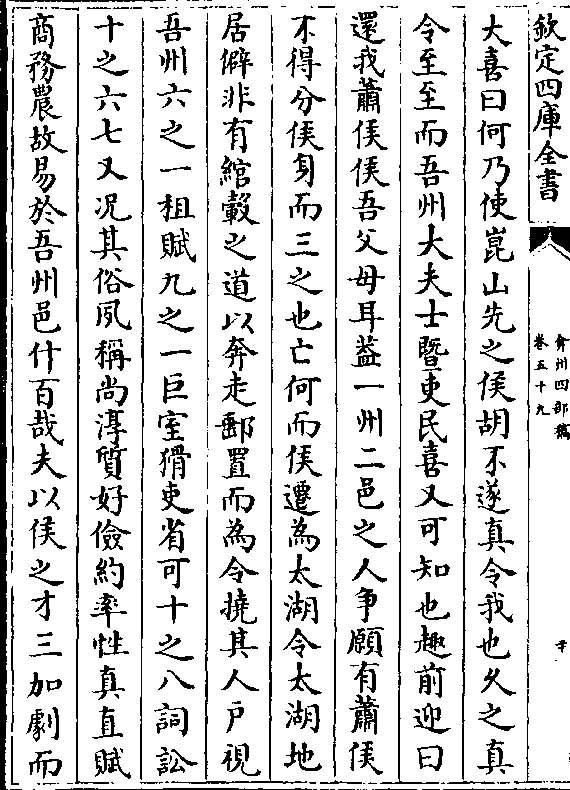 欽定四庫全書
弇州四部稿
卷五十九
大喜曰何乃使崑山先之侯胡不遂真令我也久之真
令至至而吾州大夫士暨吏民喜又可知也趣前迎曰
還我蕭侯侯吾父母耳葢一州二邑之人争願有蕭侯
不得分侯身而三之也亡何而侯遷為太湖令太湖地
居僻非有綰轂之道以奔走郵置而為令撓其人戶視
吾州六之一租賦九之一巨室猾吏省可十之八詞訟
十之六七又况其俗夙稱尚淳質好儉約率性真直賦
商務農故易於吾州邑什百哉夫以侯之才三加劇而